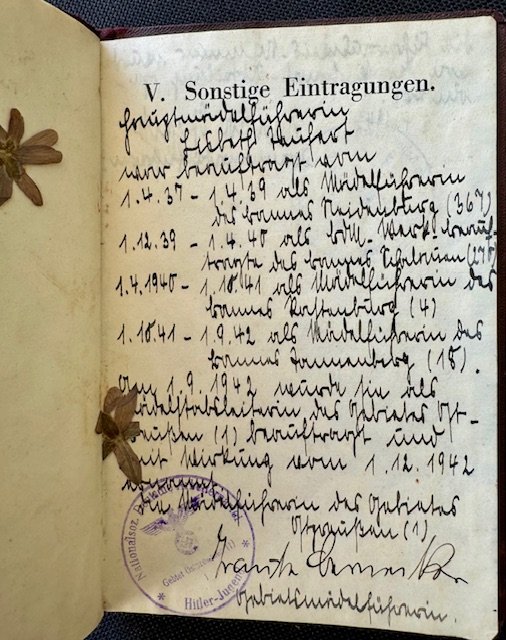 V. Sonstige Eintragungen.
Hauptmädelführerin
Lisbeth
war beauftragt vom
1.4.37 - 1.4.39 als Mädelführerin
des Bannes Neidenburg (367)
1.12.39 - 1.4.40 als BDM.-Werk beauf-
tragte des Bannes
1.4.1940 - 1.10.41 als Mädelführerin des
Bannes Rastenburg (4)
1.10.41 - 1.9.42 als Mädelführerin des
Bannes Tannenberg (18).
Am 1.9.1942 wurde sie als
Mädelstabsleiterin des Gebietes Ost-
preußen (1) beauftragt und
mit Wirkung vom 1.12.1942
ernannt.
Die Mädelführerin des Gebietes
Ostpreußen (1)
Gebietsmädelführerin.
Nationalsoz.
Gebiet Ostpreußen (1)
Hitler-Jugend